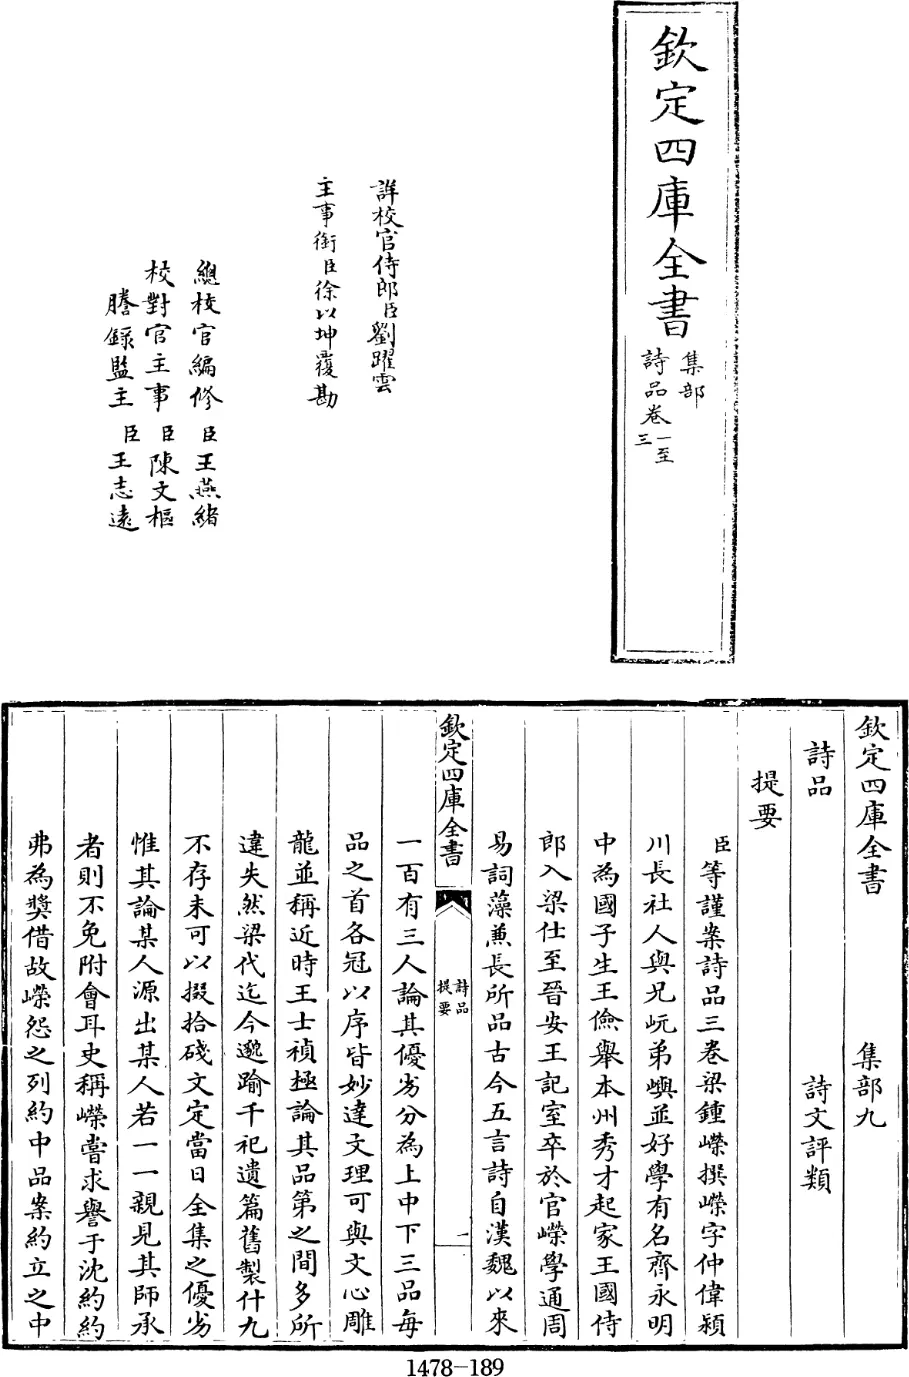 欽定四庫全書
集部
詩品卷一至三
詳校官侍郎臣劉躍雲
主事銜臣徐以坤覆勘
總校官編修臣王燕緒
校對官主事臣陳文樞
謄錄監主臣王志遠
欽定四庫全書 集部九
詩品 詩文評類
提要
臣等謹案詩品三卷梁鍾嶸撰嶸字仲偉潁
川長社人與兄岏弟嶼並好學有名齊永明
中為國子生王儉舉本州秀才起家王國侍
郎入梁仕至晉安王記室卒於官嶸學通周
易詞藻兼長所品古今五言詩自漢魏以來
欽定四庫全書
詩品
提要
一
一百有三人論其優劣分為上中下三品每
品之首各冠以序皆妙達文理可與文心雕
龍並稱近時王士禎極論其品第之間多所
違失然梁代迄今邈踰千祀遺篇舊製什九
不存未可以掇拾殘文定當日全集之優劣
惟其論某人源出某人若一一親見其師承
者則不免附會耳史稱嶸嘗求譽于沈約約
弗為獎借故嶸怨之列約中品案約立之中
1478-189